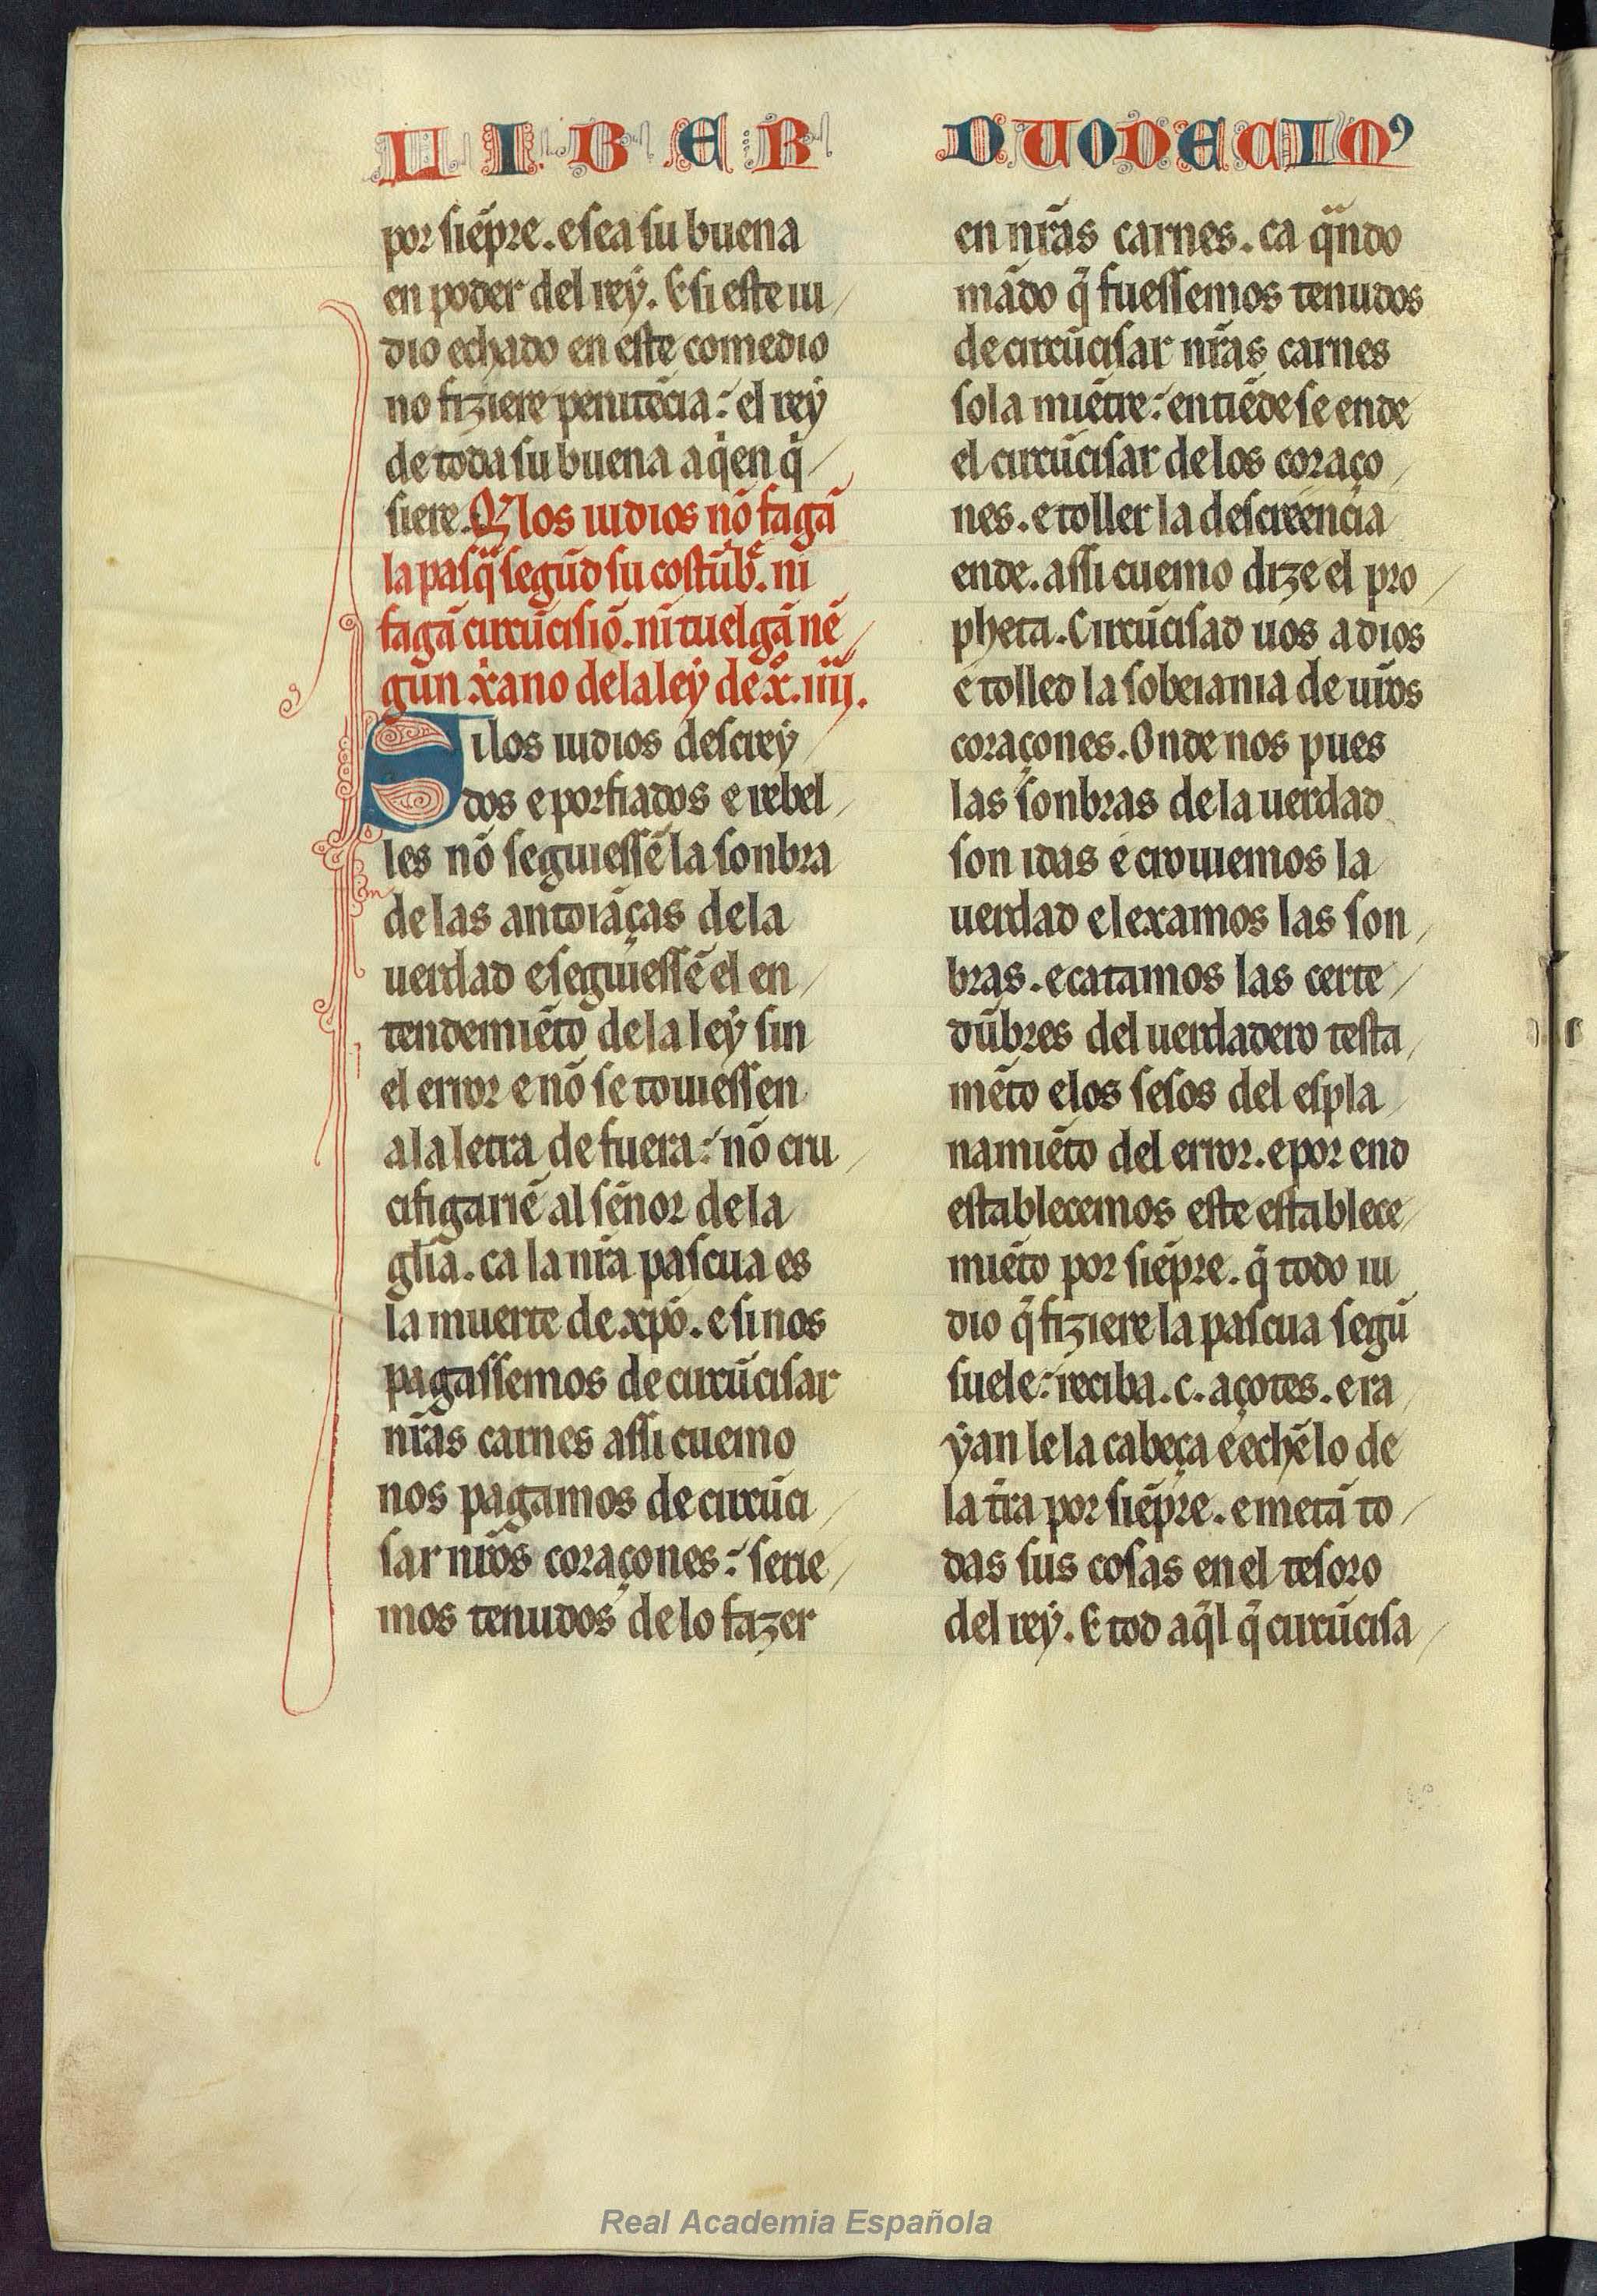 LIBER DUODECIM⁹
por siẽpre. e sea su buena
en poder del rey. E si este iu
dio echado en este comedio
no fiziere penitẽcia: el rey
de toda su buena a qͥen qͥ
siere. Q̃ los iudios nõ fagã
la pasqͣ segũd su costũbͤ. ni
fagã circũcisiõ. ni tuelgã nẽ
gun xͥano de la ley de xͦ. iiij.
Si los iudios descrey
dos e porfiados e rebel
les nõ seguiessẽ la sonbra
de las antoiãças de la
uerdad e seguiessẽ el en
tendemiẽto de la ley sin
el error e nõ se touiessen
a la letra de fuera: nõ cru
cifigariẽ al sẽnor de la
gl̃ia. ca la nr̃a pascua es
la muerte de xp̃o. e si nos
pagassemos de circũcisar
nr̃as carnes assi cuemo
nos pagamos de circũci
sar nr̃os coraçones: serie
mos tenudos de lo fazer
en nr̃as carnes. ca qͣndo
mãdo q̃ fuessemos tenudos
de circũcisar nr̃as carnes
sola miẽtre: entiẽdese ende
el circũcisar de los coraço
nes. e toller la descreencia
ende. assi cuemo dize el pro
pheta. Circũcisad uos a dios
e tolled la sobeiania de ur̃os
coraçones. Onde nos pues
las sonbras de la uerdad
son idas e crouiemos la
uerdad e lexamos las son
bras. e catamos las certe
dũbres del uerdadero testa
mẽto e los sesos del espla
namiẽto del error. e por end
establecemos este establece
miẽto por siẽpre. q̃ todo iu
dio q̃ fiziere la pascua segũ
suele: reciba. c. açotes. e ra
yan le la cabeça e echẽlo de
la tr̃a por siẽpre. e metã to
das sus cosas en el tesoro
del rey. E tod aq̃l q̃ circũcisa
Real Academia Española